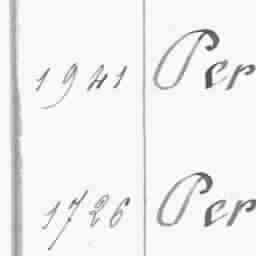 1941 Per
1726 Per